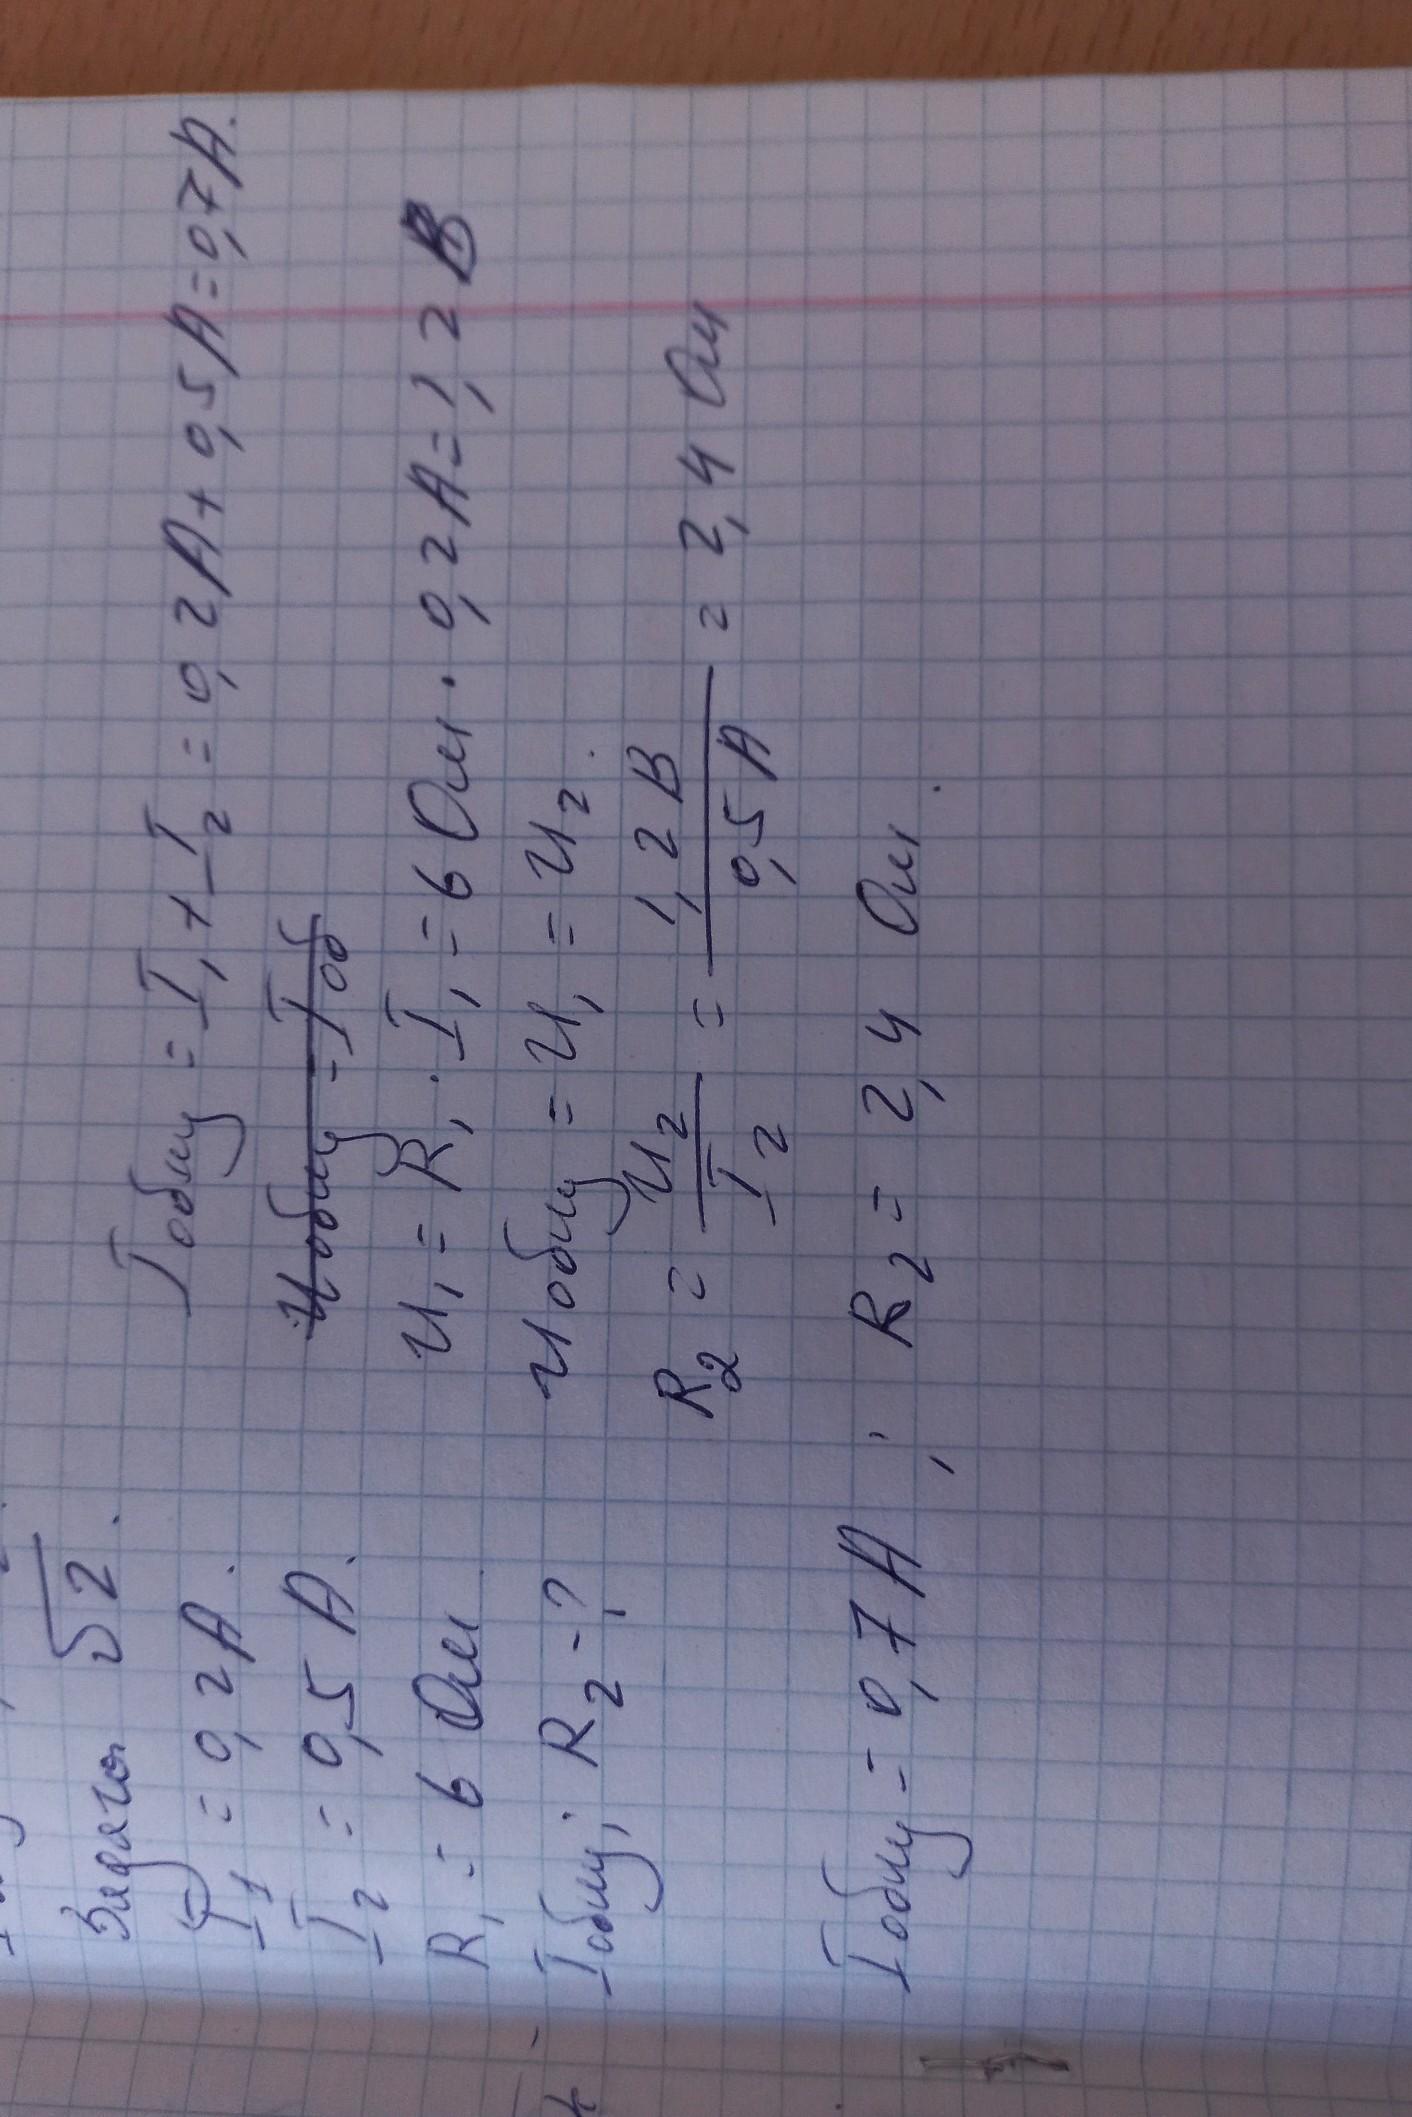 Задача √2.
I1 = 0,2А.
I2 = 0,5 А.
R1 = 6 Ом
Iобщ; R2 - ?
Iобщ = I1 + I2 = 0,2А + 0,5А = 0,7А.
Uобщ = Iоб
U1 = R1 · I1 = 6 Ом · 0,2А = 1,2 В
Uобщ = U1 = U2.
R2 = U2/I2 = 1,2В/0,5А = 2,4 Ом
Iобщ = 0,7А ; R2 = 2,4 Ом.